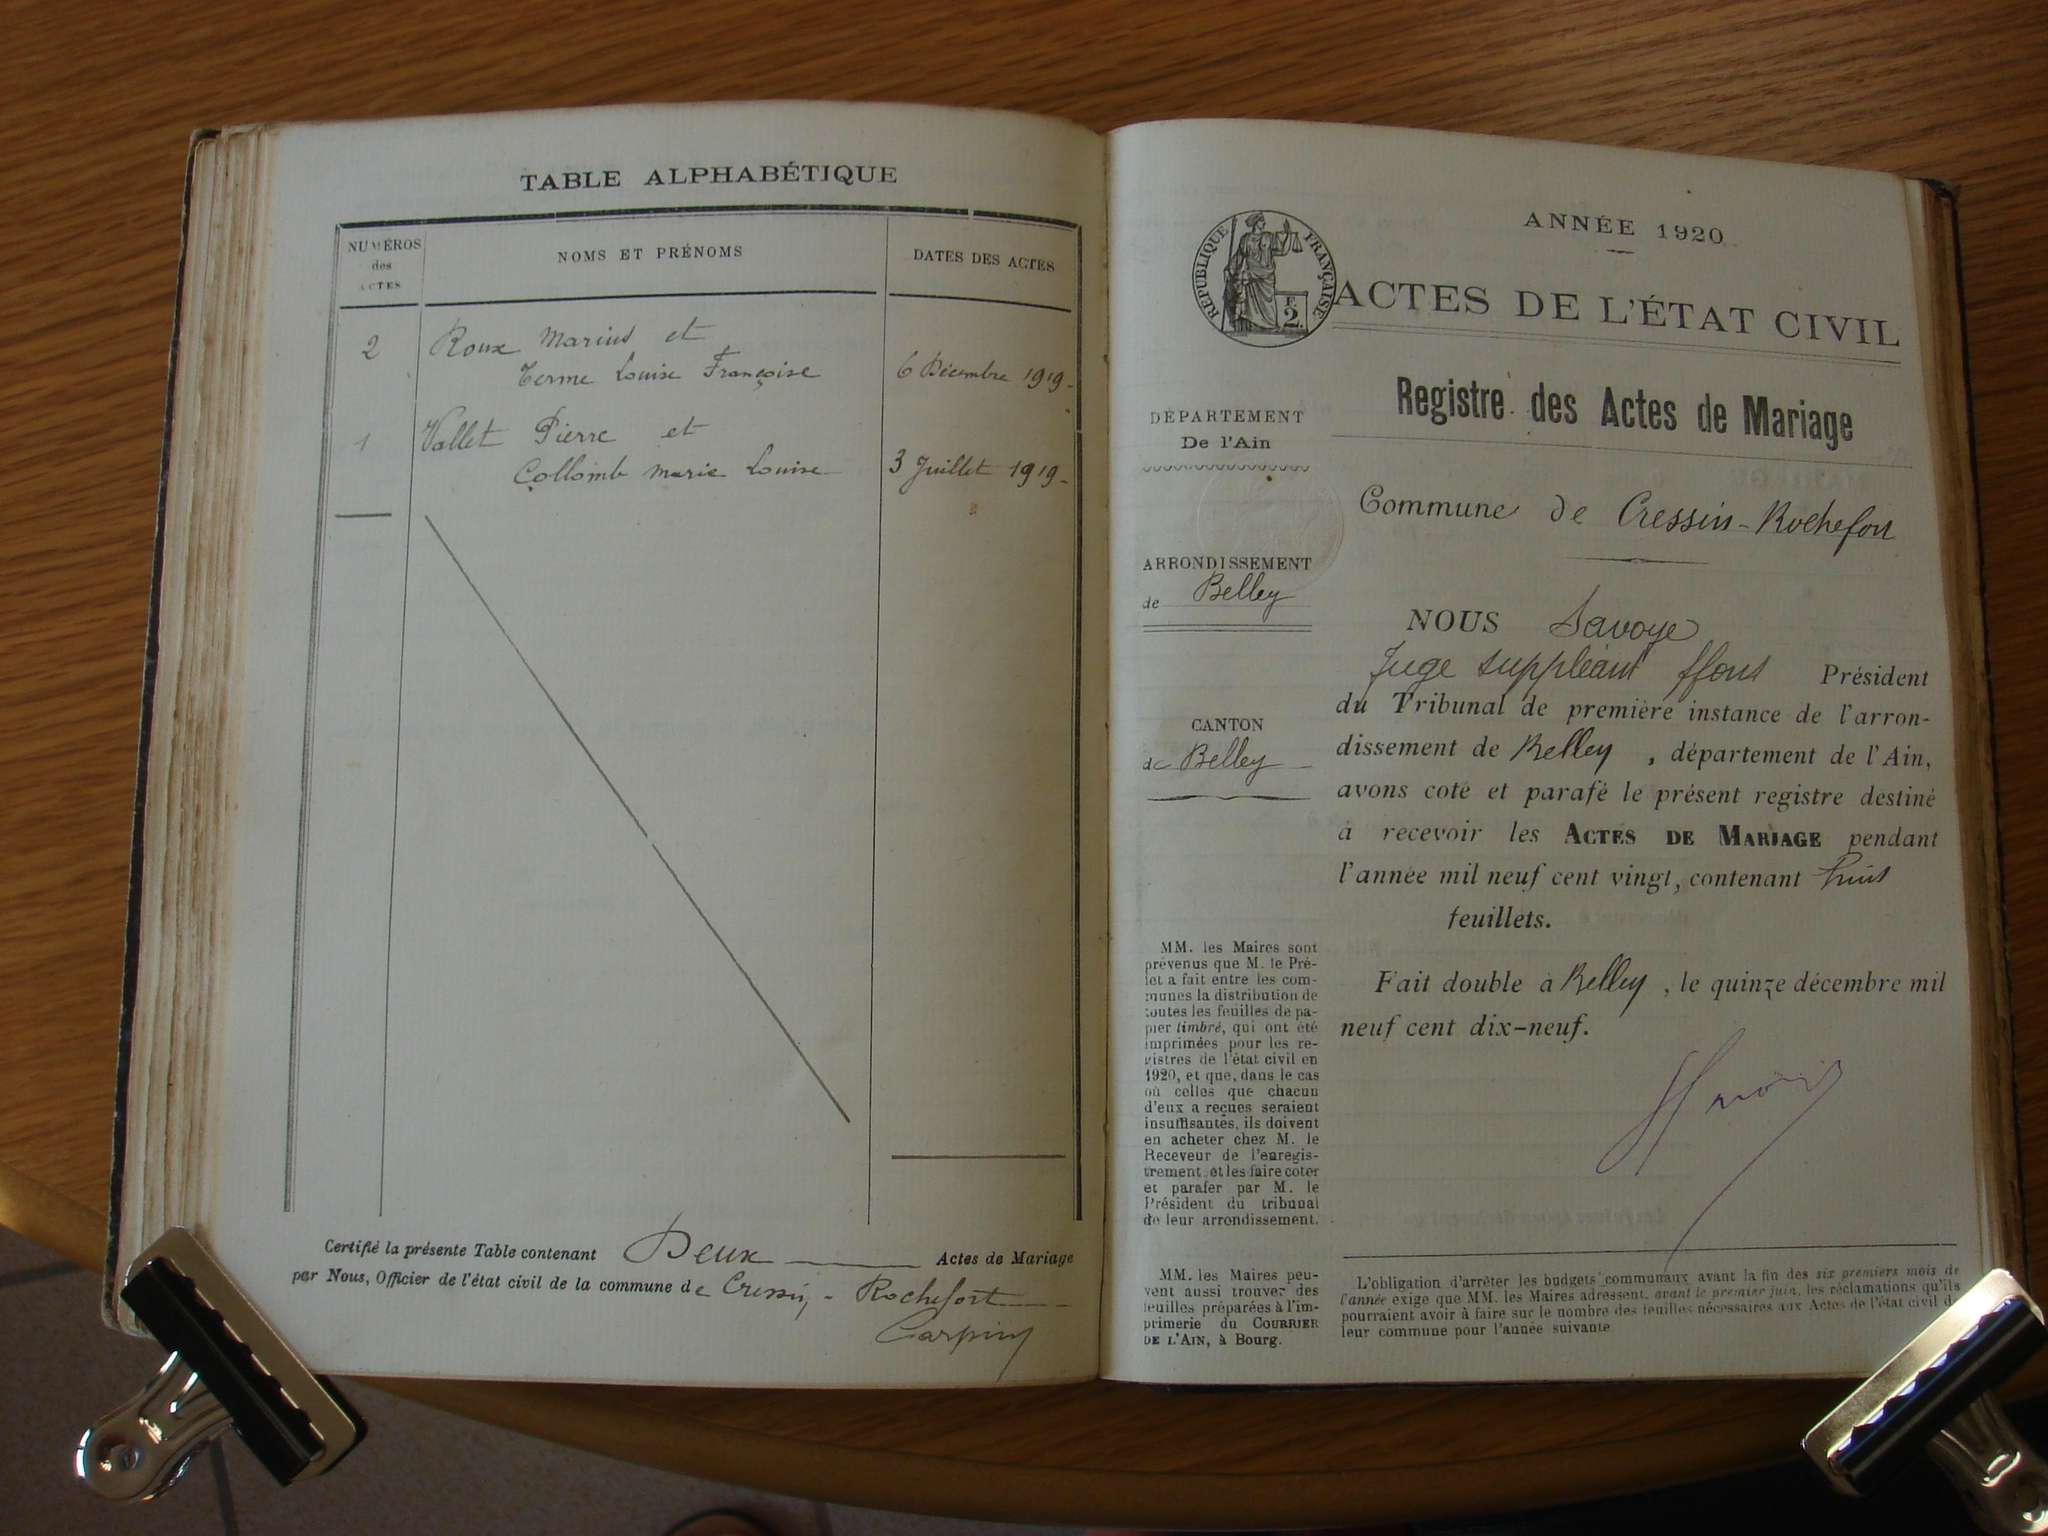 TABLE ALPHABÉTIQUE
NUMÉROS
des
ACTES
NOMS ET PRÉNOMS
DATES DES ACTES
2
Roux Marius et
Terme Louise Françoise
6 Décembre 1919
1
Vallet Pierre et
Collomb marie Louise
3 Juillet 1919
Certifié la présente Table contenant Deux Actes de Mariage
par Nous, Officier de l'état civil de la commune de Cressin - Rochefort
RÉPUBLIQUE FRANÇAISE
F.
2.
ANNÉE 1920
ACTES DE L'ÉTAT CIVIL
Registre des Actes de Mariage
DÉPARTEMENT
De l'Ain
ARRONDISSEMENT
de Belley
CANTON
de Belley
MM. les Maires sont
prévenus que M. le Pré-
fet a fait entre les com-
munes la distribution de
toutes les feuilles de pa-
pier timbré, qui ont été
imprimées pour les re-
gistres de l'état civil en
1920, et que, dans le cas
où celles que chacun
d'eux a reçues seraient
insuffisantes, ils doivent
en acheter chez M. le
Receveur de l'enregis-
trement et les faire coter
et parafer par M. le
Président du tribunal
de leur arrondissement.
MM. les Maires peu-
vent aussi trouver des
feuilles préparées à l'im-
primerie du COURRIER
DE L'AIN, à Bourg.
Commune de Cressin-Rochefort
NOUS Savoye
Juge suppléant ffons Président
du Tribunal de première instance de l'arron-
dissement de Belley, département de l'Ain,
avons coté et parafé le présent registre destiné
à recevoir les ACTES DE MARIAGE pendant
l'année mil neuf cent vingt, contenant huit
feuillets.
Fait double à Belley, le quinze décembre mil
neuf cent dix-neuf.
L'obligation d'arrêter les budgets communaux avant la fin des six premiers mois de
l'année exige que MM. les Maires adressent, avant le premier juin, les réclamations qu'ils
pourraient avoir à faire sur le nombre des feuilles nécessaires aux Actes de l'état civil de
leur commune pour l'année suivante